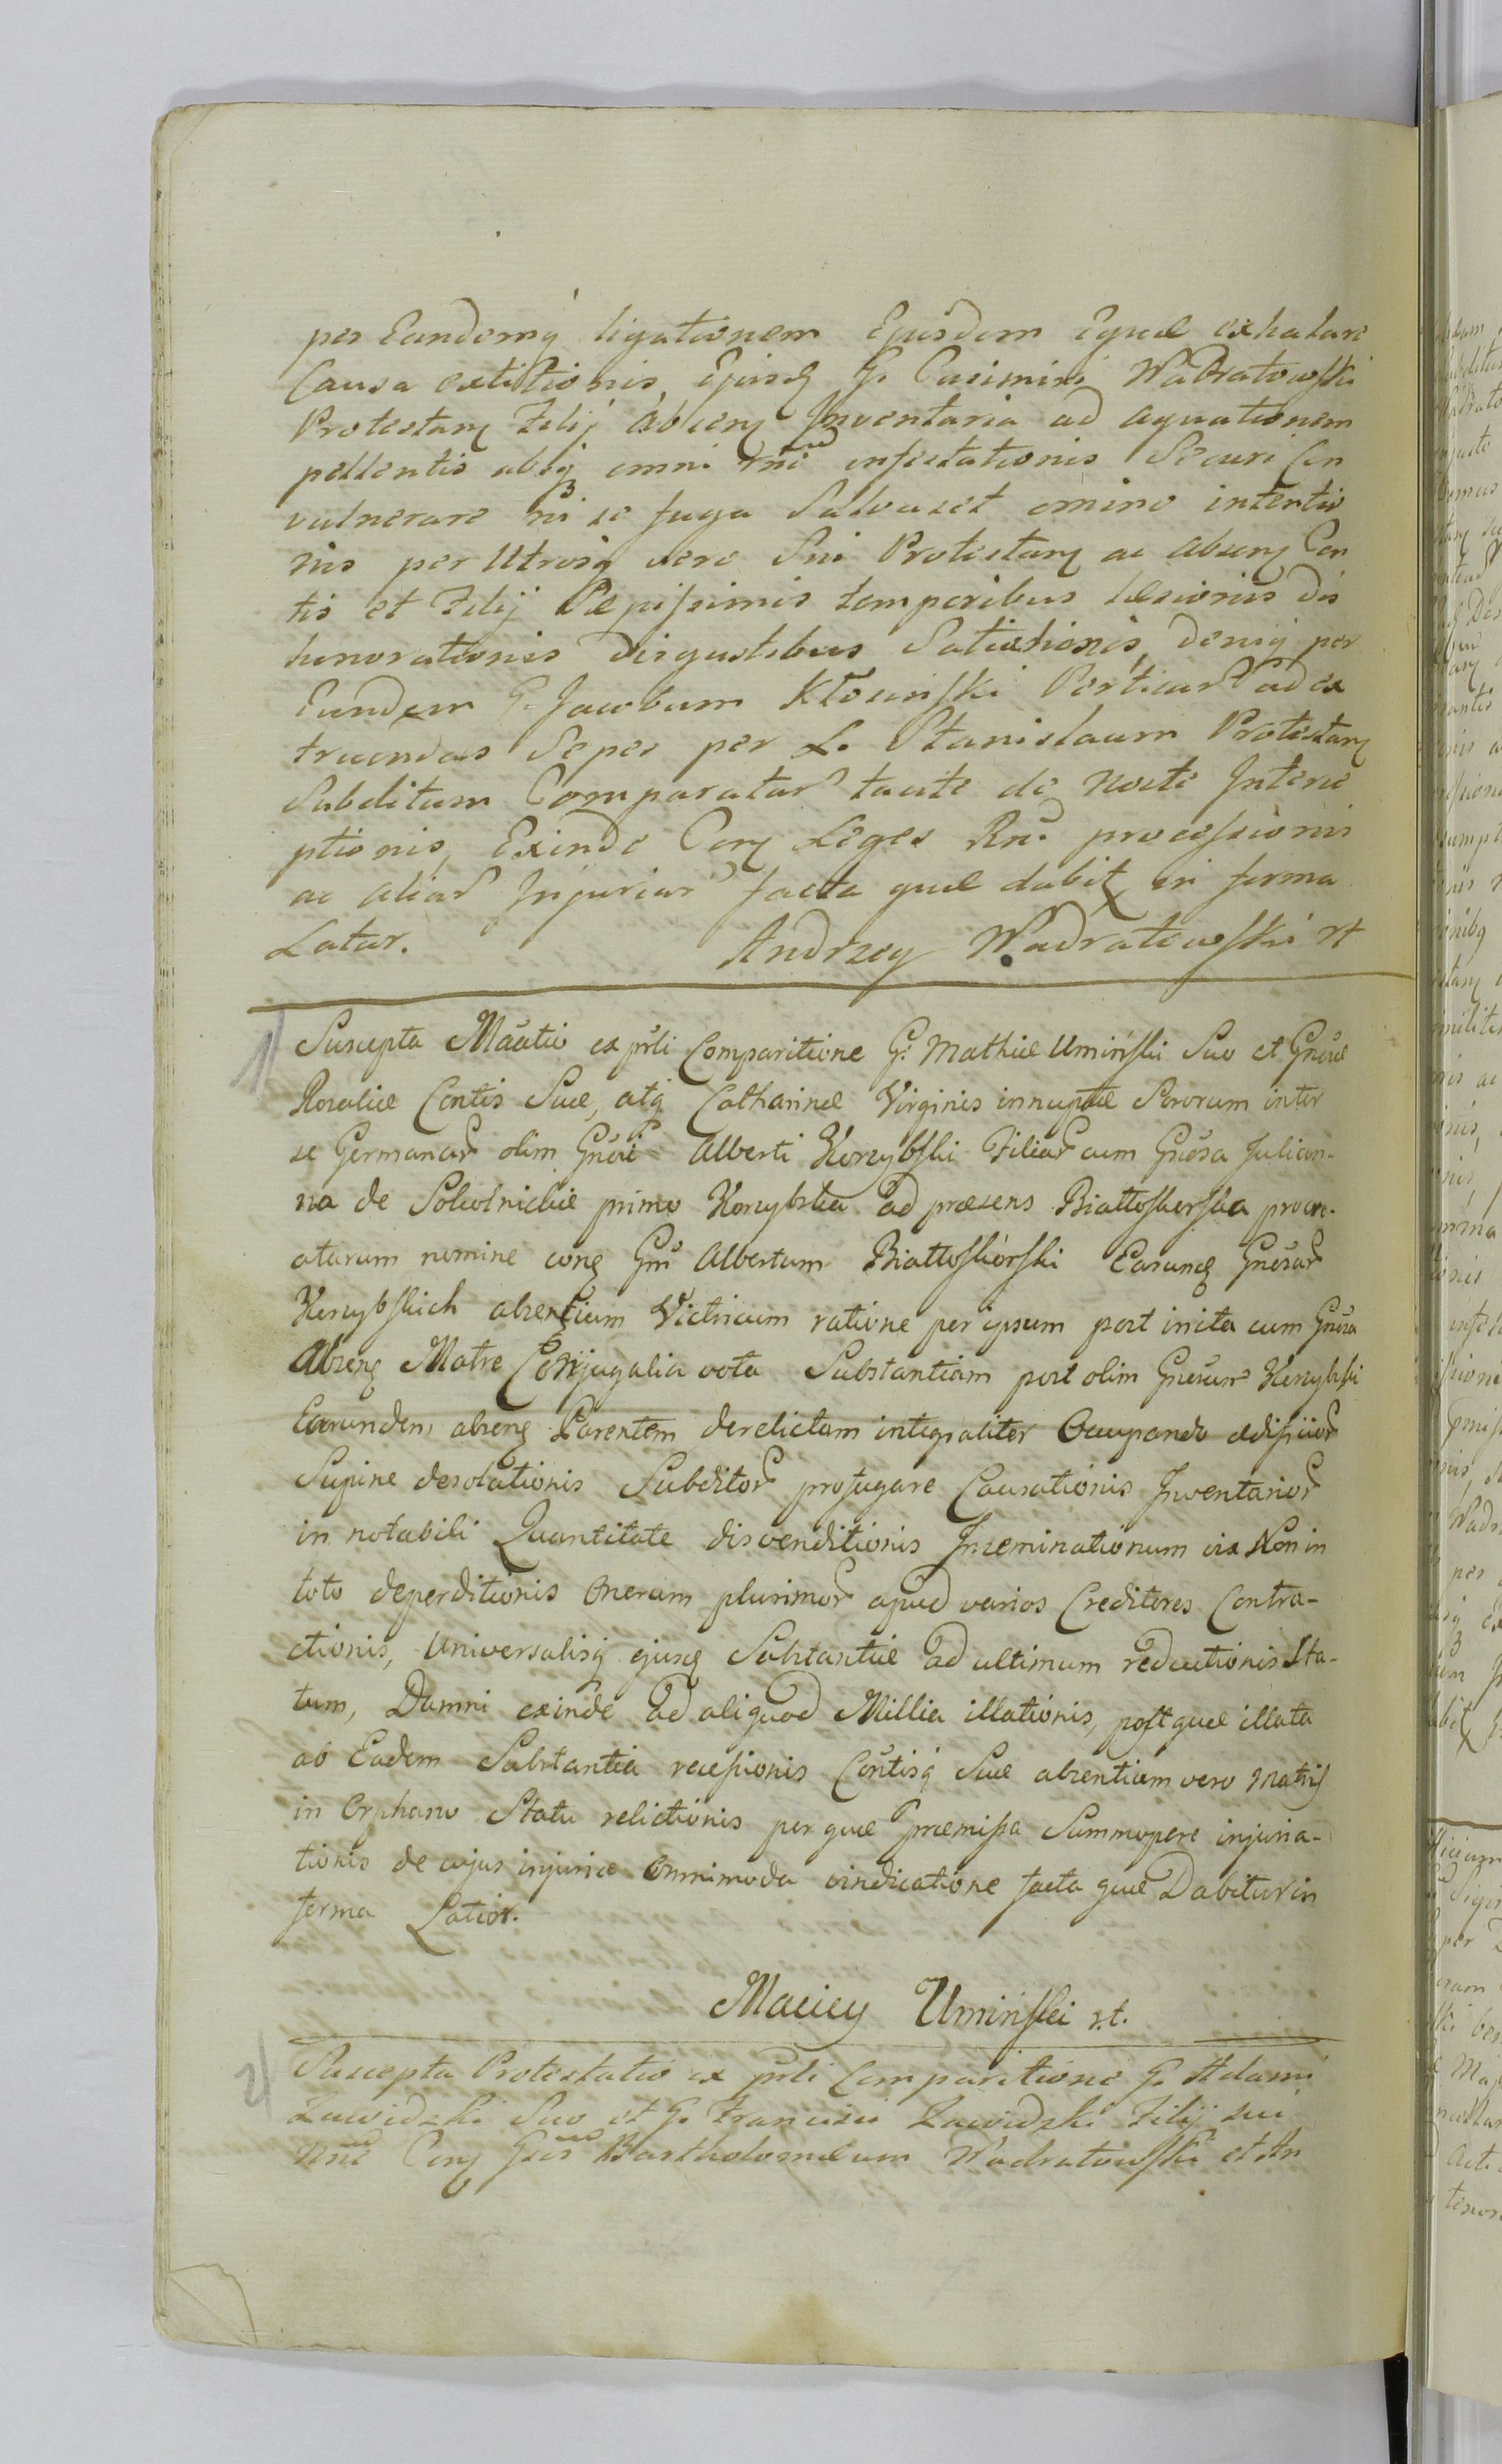 per Eundemq ligationem Ejusdem Equae exhalare
Causa extitionis, Ejusq G. Casimiri Wadratowski
Protestanq Filij absenq Inventaria ad aquationem
pellentis absq omni rnē infestationis Securi Con
vulnerare ni se fuga Salvaset omino intentio
nis per Utrosq vero Sui Protestanq ac absenq Con
tis et Filij Saepissimis temporibus laesionis dis
honorationis disgustibus Satiationis, deniq per
Eundem G. Jacobum Kłosiński Perticar ad ex
truendas Sepes per L. Stanislaum Protestanq
Subditum Comparatar tacite de nocte Interce
ptionis, Exinde Conq Leges Rni processionis
ac aliar Injuriar facta quae dabitq in forma
Latar. Andrzey Wadratowski rt
1)
Suscepta Mãatio ex prli Comparitione G. Mathiae Umiński Suo et Gnosae
Rosaliae Contis Suae, atq Catharinae Virginis innuptae Sororum inter
se Germanar olim Gnosi Alberti Korzybski Filiar cum Gnosa Julian-
na de Sokolnickie primo Korzybska ad praesens Białłoskorska procre-
atarum nomine conq Gm Albertum Białłoskórski Earunq Gnosar
Korzybskich absentium Victricum ratione per ipsum post inita cum Gnosa
Absenq Matre Conjugalia vota Substantiam post olim Gnosum Korzybski
Earundem absenq Parentem derelictam integraliter Occupando aedificior
Supine desolationis Subditor profugare Causationis Inventarior
in notabili Quantitate disvenditionis Inseminationum vix Non in
toto deperditionis Onerum plurimor apud varios Creditores Contra-
ctionis, Universalisq ejusq Substantiae ad ultimum reductionis Sta-
tum, Damni exinde ad aliquod Millia illationis, postquae illata
ab Eadem Substantia recessionis Contisq Suae absentium vero Matris
in Orphano Statu relictionis per quae praemissa Summopere injuria-
tionis de cujus injuriae Omnimoda vindicatione facta quae Dabitur in
forma Latior.
Maciey Umiński rt.
2)
Suscepta Protestatio ex prli Comparitione G. Adami
Zawidzki Suo et G. Francisci Zawidzki Filij sui
nne Conq Gnos Bartholomaeum Wadratowski et An